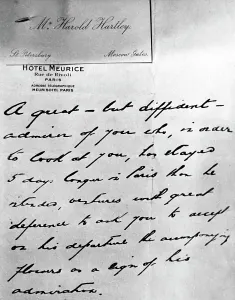 Mr Harold Hartley.
St. Petersburg Moscow
HOTEL MEURICE
Rue de Rivoli
PARIS
ADRESSE TÉLÉGRAPHIQUE
MEURISOTEL PARIS
A great – but diffident –
admirer of you who, in order
to look at you, has stayed
5 days longer in Paris than he
intended, ventures with great
deference to ask you to accept
on his departure the accompanying
flowers as a sign of his
admiration.